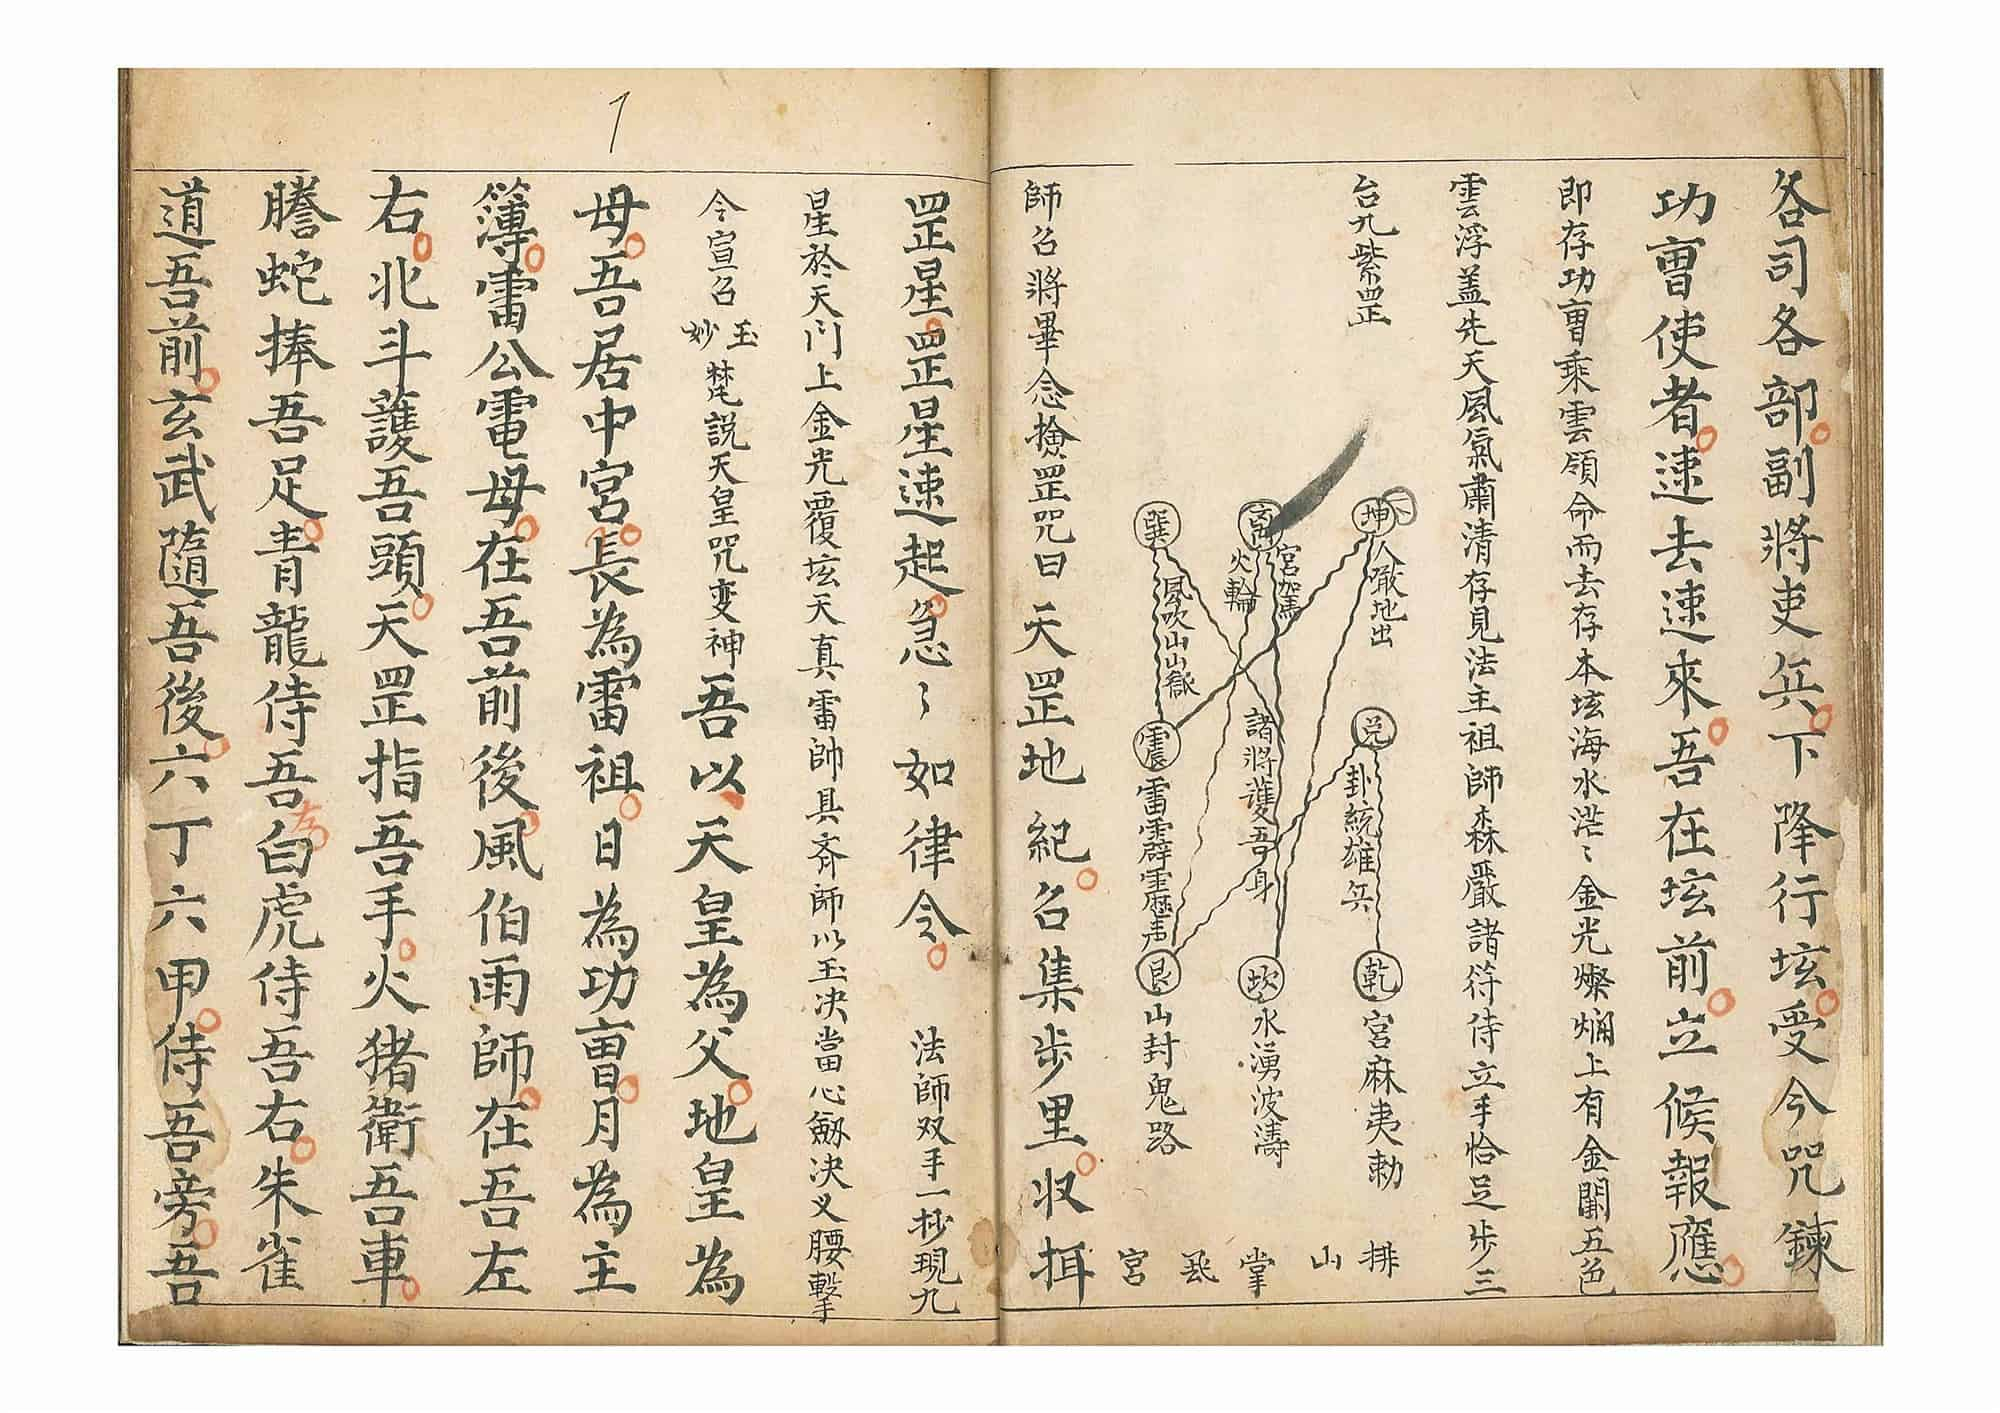 各司各部副將吏兵下降行玹受今咒鍊
功曹使者速去速來吾在玹前立候報應
即存功曹乘雲領命而去存本玹海水茫〻金光燦爛上有金闕五色
雲浮盖先天風氣肅清存見法主祖師森嚴諸符侍立手恰足步三
台九紫罡
坤
人啾地出
兌
卦統雄兵
乾
宮麻夷勅
排
离
宮駕
火輪
諸將護吾身
坎
水湧波濤
山
掌
巽
風吹山山嶽
震
雷霹靂声
艮
山封鬼路
宮
師召將畢念撿罡咒曰天罡地紀召集步里收
罡星罡星速起急〻如律令 法師双手一抄現九
星於天门上金光覆玹天真雷帥具斉師以玉决當心劔决义腰擊
令宣召玉妙梵説天皇咒变神吾以天皇為父地皇為
母吾居中宮長為雷祖日為功曹月為主
簿雷公電母在吾前後風伯雨師在吾左
右北斗護吾頭天罡指吾手火猪衛吾車
騰蛇捧吾足青龍侍吾左白虎侍吾右朱雀
道吾前玄武隨吾後六丁六甲侍吾旁吾